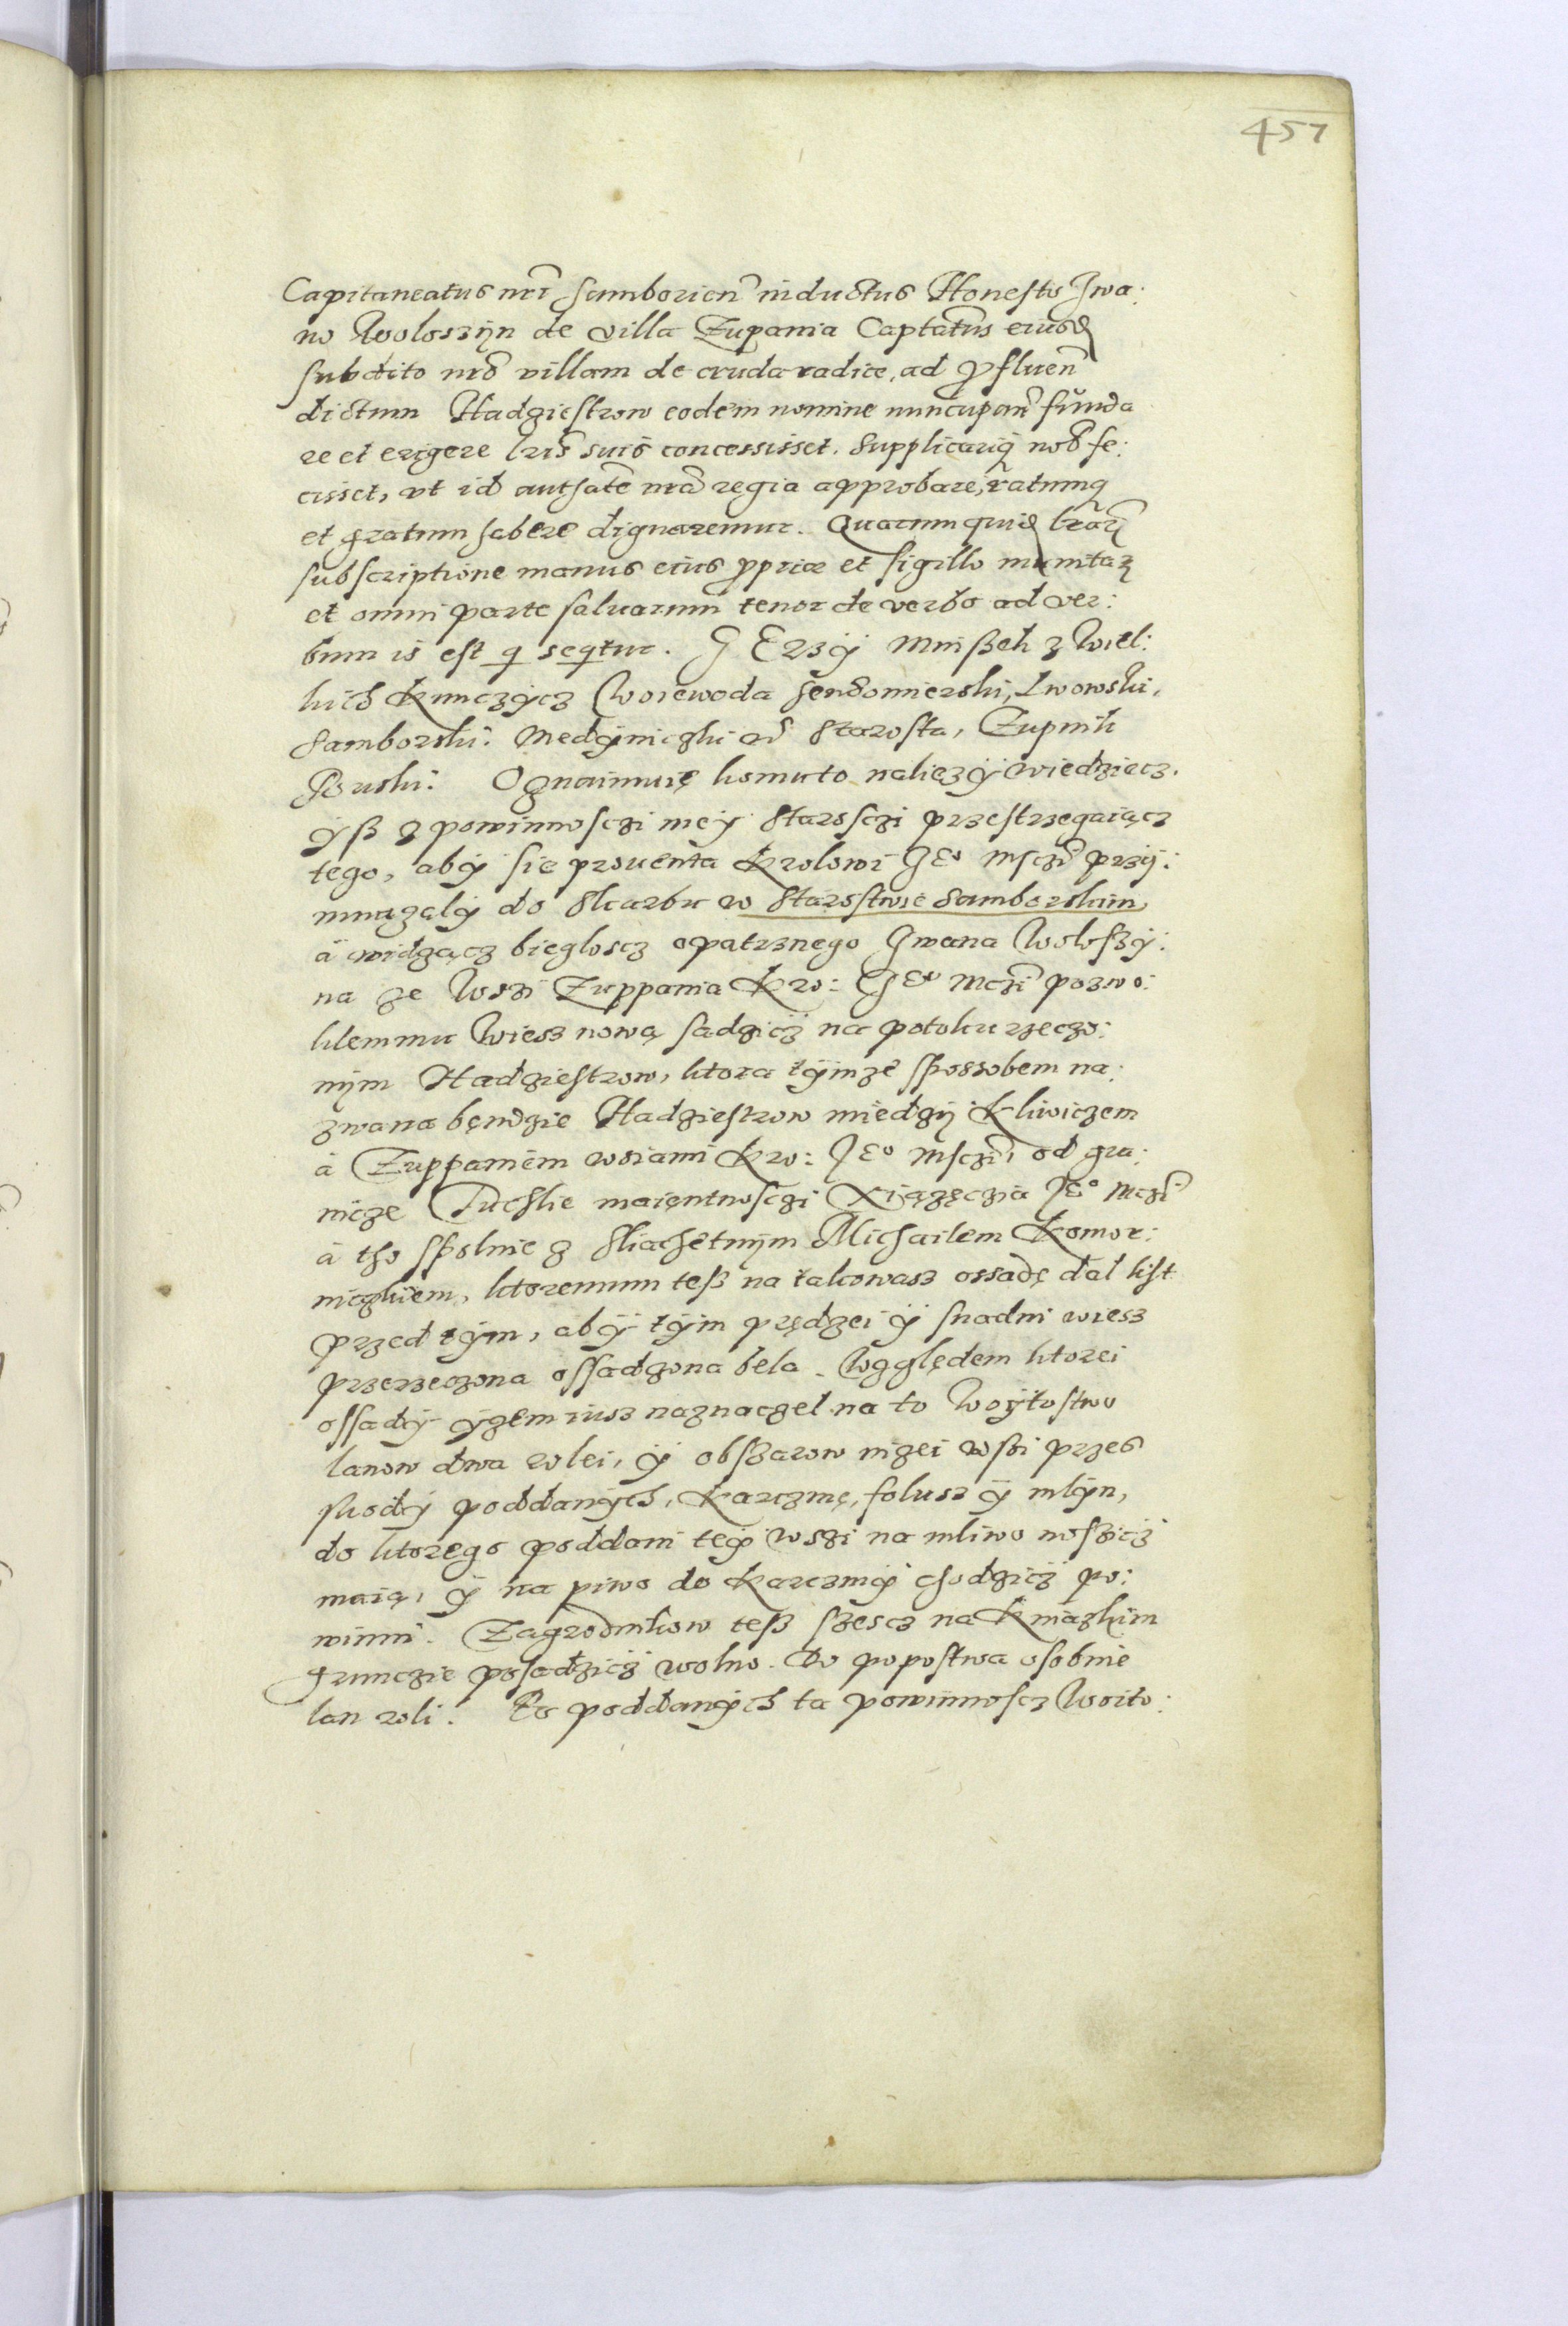 457
Capitaneatus nrī Samborien̄ inductus Honesto Iwa:
no Woloszÿn de villa Zupania Captatus eiusd
subdito nrō villam de cruda radice, ad pfluen̄
dictum Hadziestrow eodem nomine nuncupan̄ funda
re et erigere lrīs suis concessisset. Supplicariq nob fe:
cisset, vt id authatē nrā regia approbare, ratumq
et gratum habere dignaremur. Quarumquid lrar̄
subscriptione manus eius pprice et sigillo munitar
et omni parte saluarum tenor de verbo ad ver:
bum is est q seqtur. J Erzÿ Mnißek z Wiel:
kich Kunczÿcz Woiewoda Sendomierski, Lwowski,
Samborski: Medÿniczki etc̄ Starosta, Zupnik
Ruski: Oznaimuię komuto nalieżÿ wiedziecz.
ÿß z powinnosczi meÿ Starosczi przestrzegaiącz
tego, abÿ sie prouenta Krolowi JEo Msczi przÿ:
mnazalÿ do Skarbu w Starostwie Samborskim,
à widzącz biegloscz opatrznego Jwana Woloszÿ:
na ze Wszi Zuppania Kro: JEo Mczi pozwo:
lilemmu Wiesz nową sadzicz na potoku rzeczo:
nÿm Hadziestrow, ktora tÿmze spossobem na:
zwana bęndzie Hadziestrow miedzÿ Kliwiczem
à Zuppaniem wsiami Kro: JEo Msczi, od gra:
nicze Tuchlie maięntnosczi Xiążęczia JEo Mczi
à tho spolnie z Sliachetnÿm Michailem Komor:
niczkiem, ktoremum teß na takowasz ossadę dal list
przed tÿm, abÿ tÿm prędzei ÿ snadni wiesz
przerzeczona ossadzona bela. Względem ktorei
ossadÿ ÿzem iusz naznaczel na to Woÿtostwo
lanow dwa rolei, ÿ obszarow nizei wszi przes
skodÿ poddanÿch, Karczmę, folusz ÿ mlÿn,
do ktorego poddani teÿ wszi na mliwo nosicz
maią, ÿ na piwo do Karczmÿ chodzicz po:
winni. Zagrodnikow teß szescz na Kniazkim
grunczie posadzicz wolno. Do popostwa osobnie
lan roli. Po poddanÿch ta powinnoscz Woito: